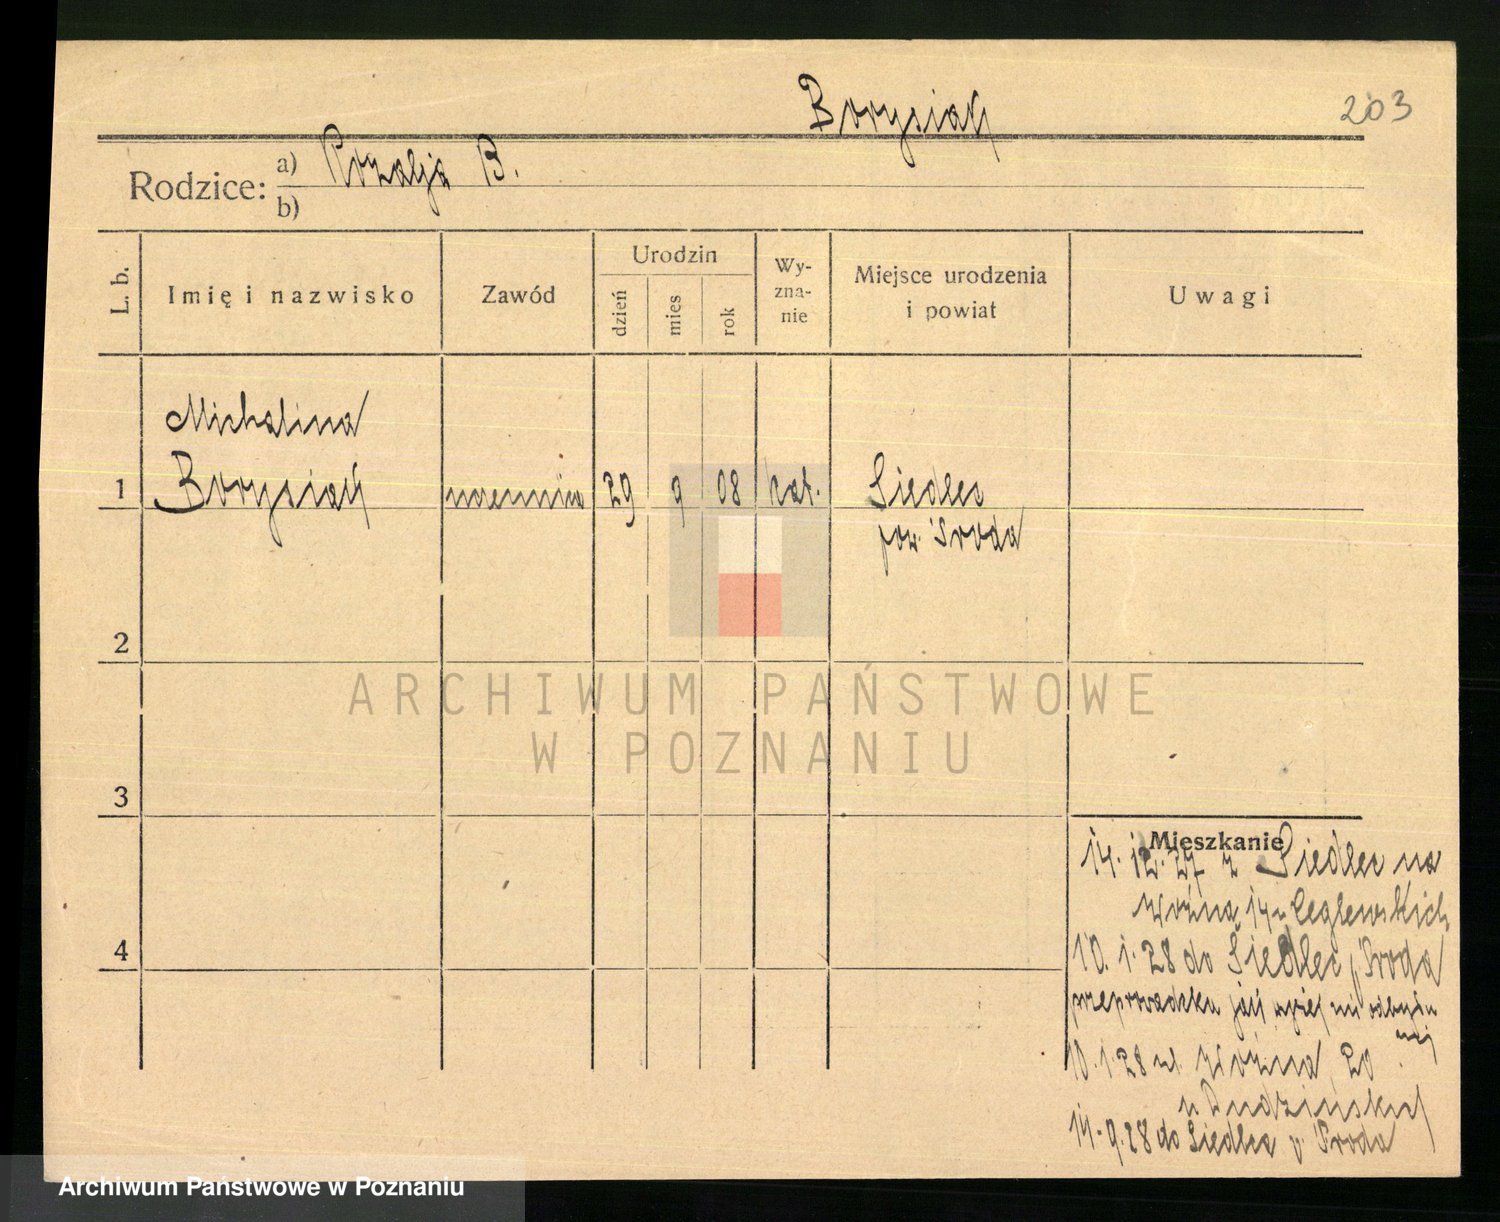 Borysiak
203
Rodzice: a) Rozalja B.
b)
L. b.
Imię i nazwisko
Zawód
Urodzin
dzień
mies
rok
Wy-
zna-
nie
Miejsce urodzenia
i powiat
Uwagi
Michalina
1 Borysiak uczennica 29 9 08 kat. Siedlec
pow. Środa
2
3
4
Mieszkanie
14. 12. 27 z Siedlec na
Woźną 14 u Ceglewskich
10. 1. 28 do Siedlec p. Środa
przeprowadzka jak wyżej nie odbyła
się
10. 1. 28 ul. Woźna 20
u Dudzińskich
14. 9. 28 do Siedlec p. Środa
ARCHIWUM PAŃSTWOWE
W POZNANIU
Archiwum Państwowe w Poznaniu